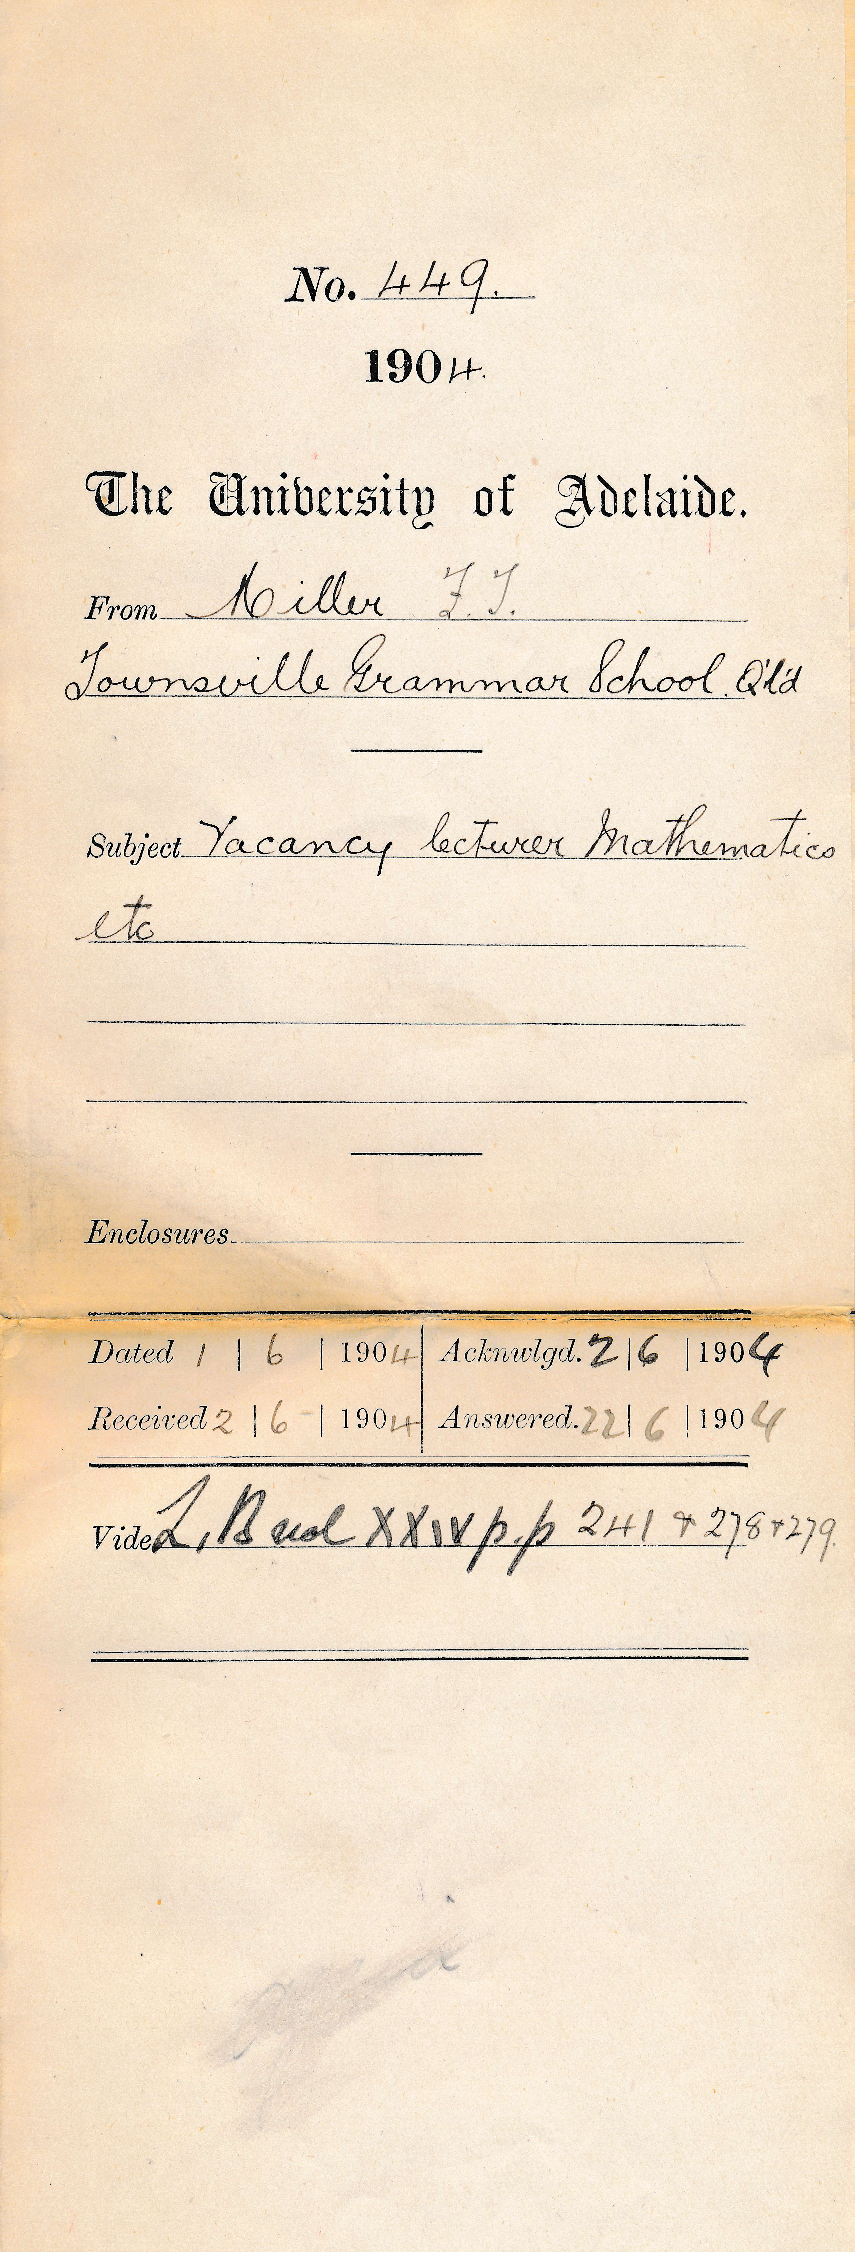 No. 449.
1904.
The University of Adelaide.
From Miller F. T.
Townsville Grammar School. Q'ld
Subject Vacancy lecturer Mathematics
etc
Enclosures
Dated 1 | 6 | 1904 Acknwlgd. 2 | 6 | 1904
Received 2 | 6 | 1904 Answered. 22 | 6 | 1904
Vide L, B vol XXIV p.p 241 & 278 + 279.